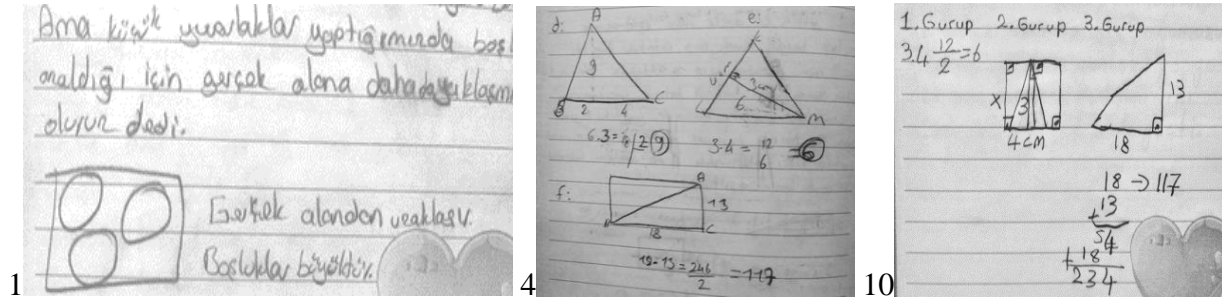 Ama küçük yuvarlaklar yaptığımızda boşl
azaldığı için gerçek alana dahada yaklaşmı
oluruz dedi.
Gerçek alandan uzaklaşır.
Boşluklar büyüktür.
1
d:
A
9
B 2 4 C
6.3=
2 9
e:
K
6
M
3.4 = 12
6 = 6
f:
A
13
18 C
= 117
2
4
1.Gurup 2.Gurup 3.Gurup
3.4 12/2=6
X
3
4CM
13
18
18 → 117
13
+
54
+18
234
10